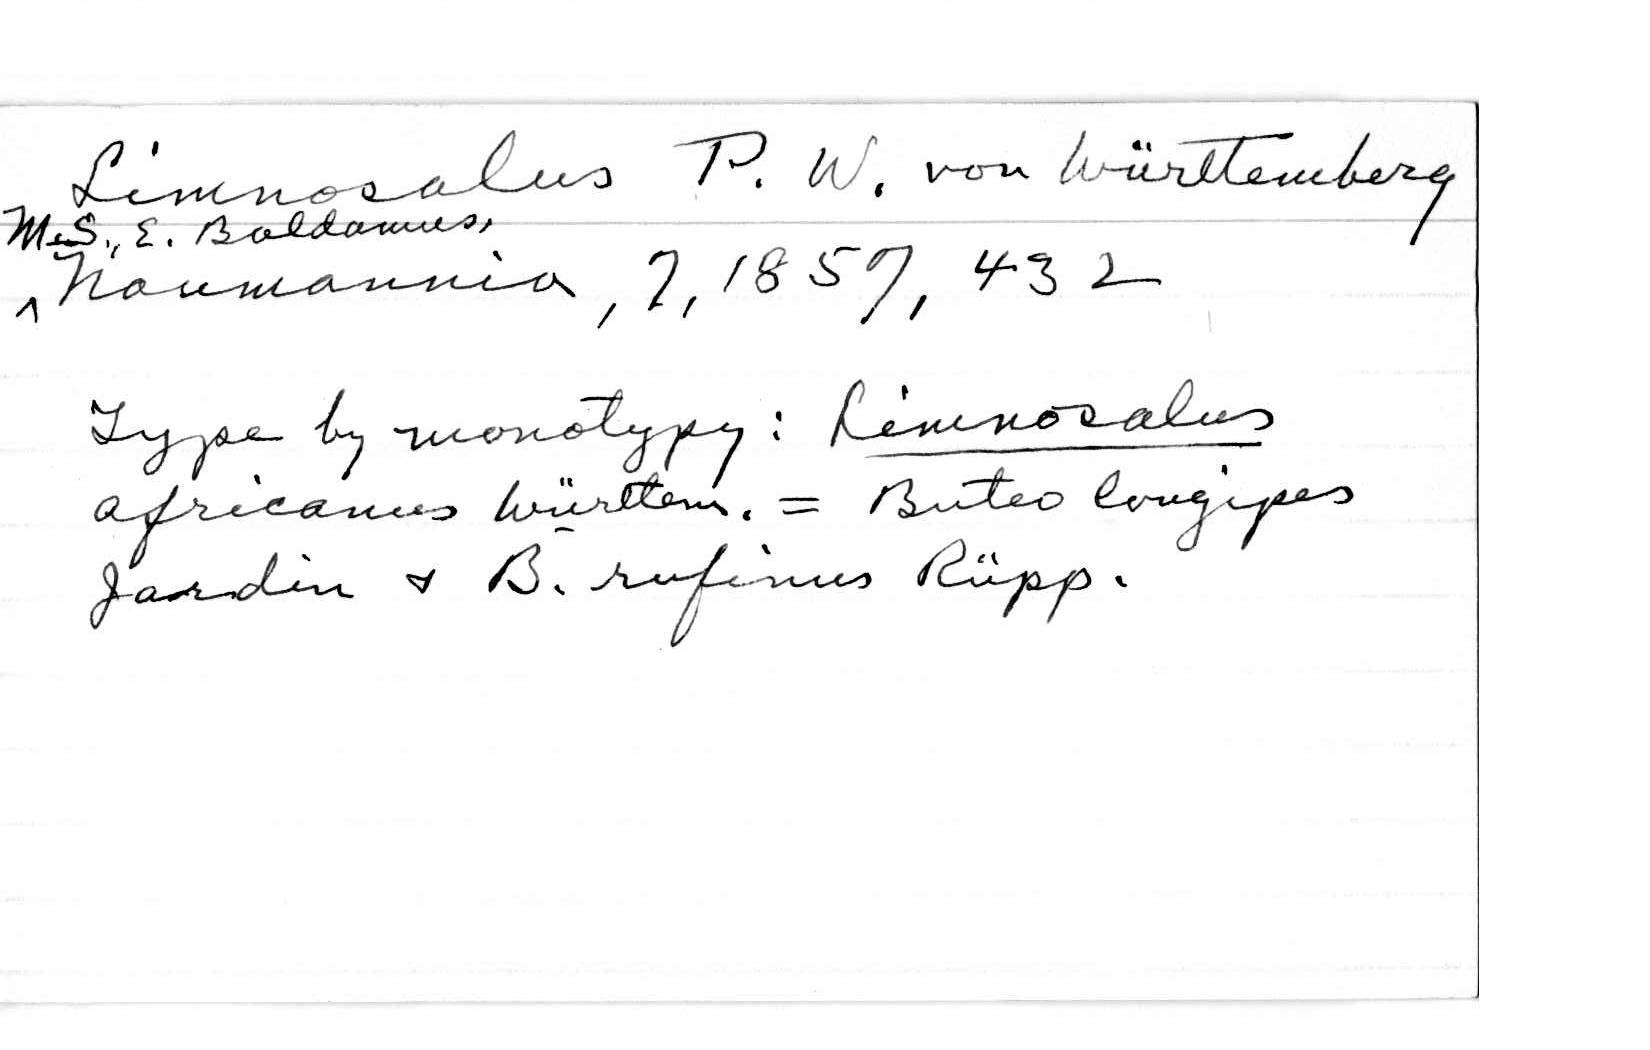 Limnosalus P. W. von Württemberg
M.S., E. Baldamus,
^ Naumannia, 7, 1857, 432
Type by monotypy: Limnosalus
africanus Württem. = Buteo longipes
Jardin & B. rufinus Rüpp.